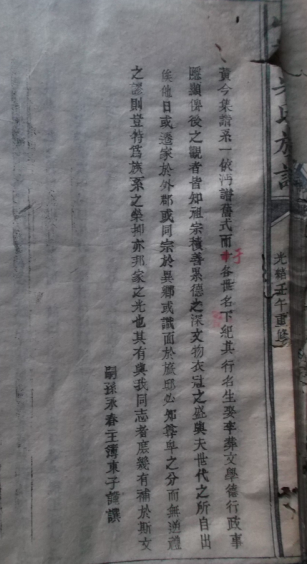 賢今集譜系一依沔譜舊式而於各世名下紀其行名生娶卒葬文學德行政事
匯顯俾後之觀者皆知祖宗積善累德之深文物衣冠之盛與夫世代之所自出
他日或遷家於外郡或同宗於異鄉或識面於旅邸必知尊卑之分而無逆禮
之誤則豈特為族系之榮抑亦邦家之光也其有與我同志者庶幾有補於斯文
嗣孫禾春王傳東子謹譔
氏族譜
光緒壬午重修